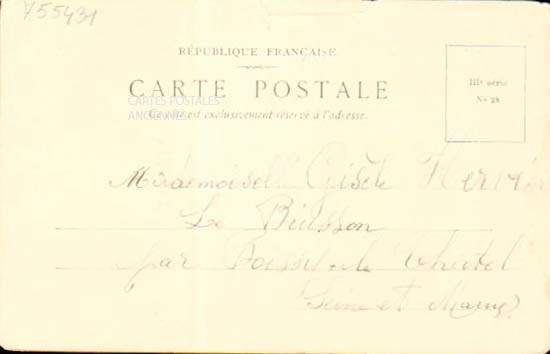 755431
RÉPUBLIQUE FRANÇAISE
CARTE POSTALE
CARTES POSTALES
ANCIENNES
Ce côté est exclusivement réservé à l'adresse.
IIIe série
No 28
Mademoiselle Gisèle
Le Buisson
par Boissy-le Chatel
Seine et Marne